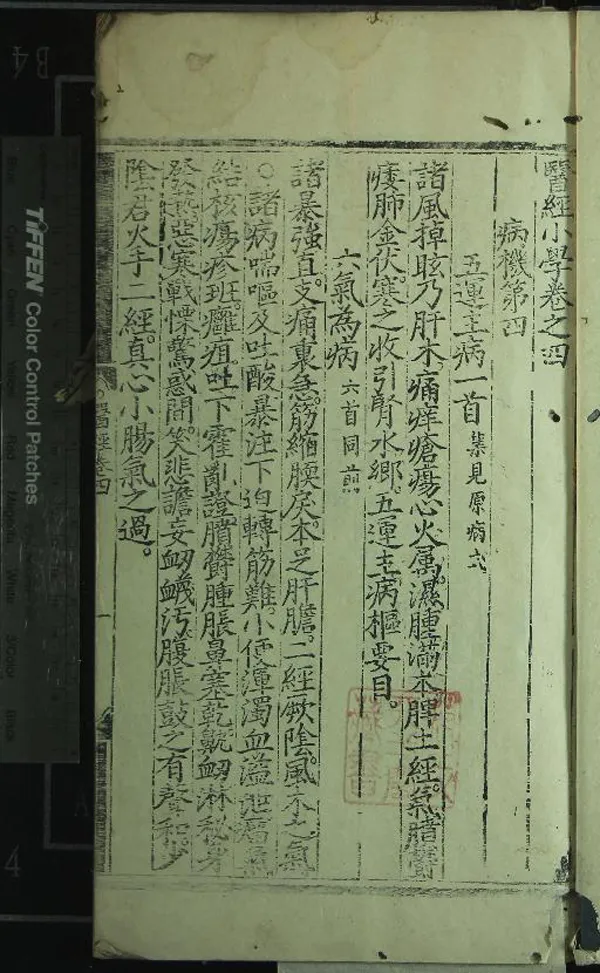 醫經小學卷之四
病機第四
五運主病一首 集見原病式
諸風掉眩乃肝木。痛痒瘡瘍心火属。濕腫滿本脾土經。氣膹鬱
痿肺金伏。寒之收引腎水郷。五運主病樞要目。
六氣為病 六首同前
諸暴強直。支痛裏急。筋縮腰戾。本足肝膽。二經厥陰。風木之氣
○諸病喘嘔及吐酸。暴注下迫轉筋難。小便渾濁血溢泄。瘤氣
結核瘍疹班。癰疽吐下霍亂證。膹鬱腫脹鼻塞乾。鼽衂淋秘身
發熱。惡寒戰慄驚惑間。笑悲譫妄衂衊汚。腹脹鼓之有聲和。少
陰君火手二經。真心小腸氣之過。
醫經卷四
一
TIFFEN Color Control Patches
B4
4